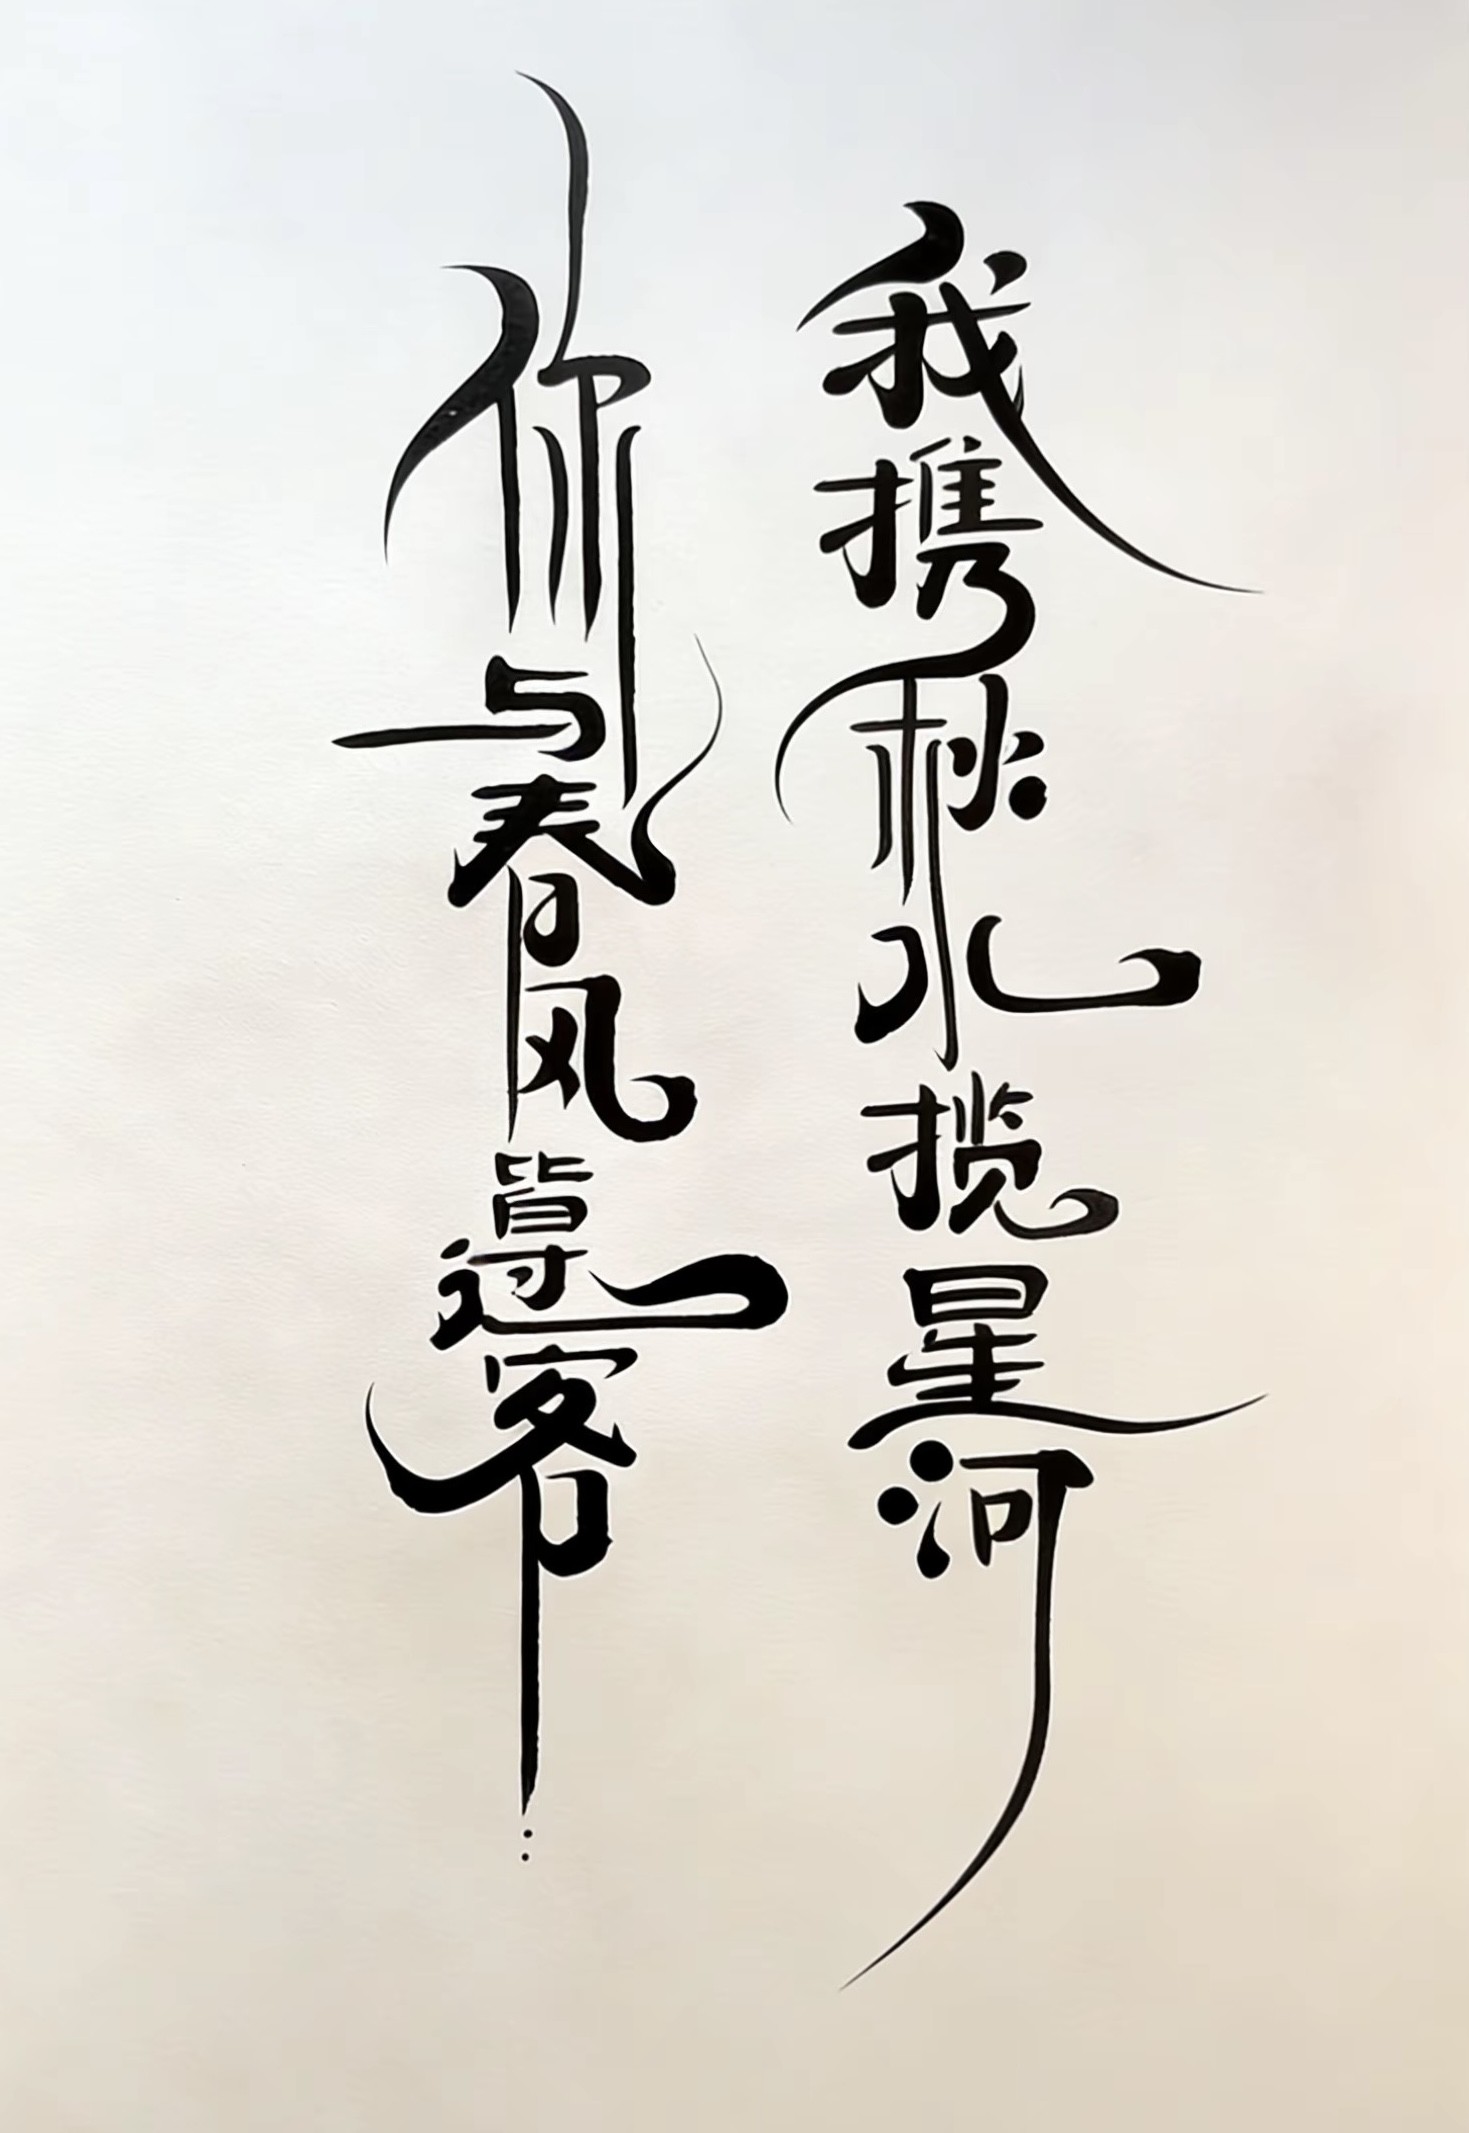 你与春风皆过客
我携秋水揽星河